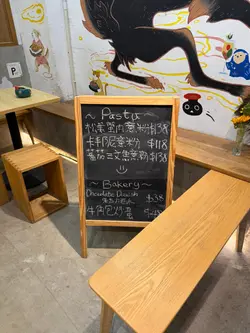 ~Pasta~
松茸蟹肉意粉$138
卡邦尼意粉 $118
蕃茄三文魚意粉$138
~Bakery~
Chocolate Danish
$38
牛角包炒蛋
P